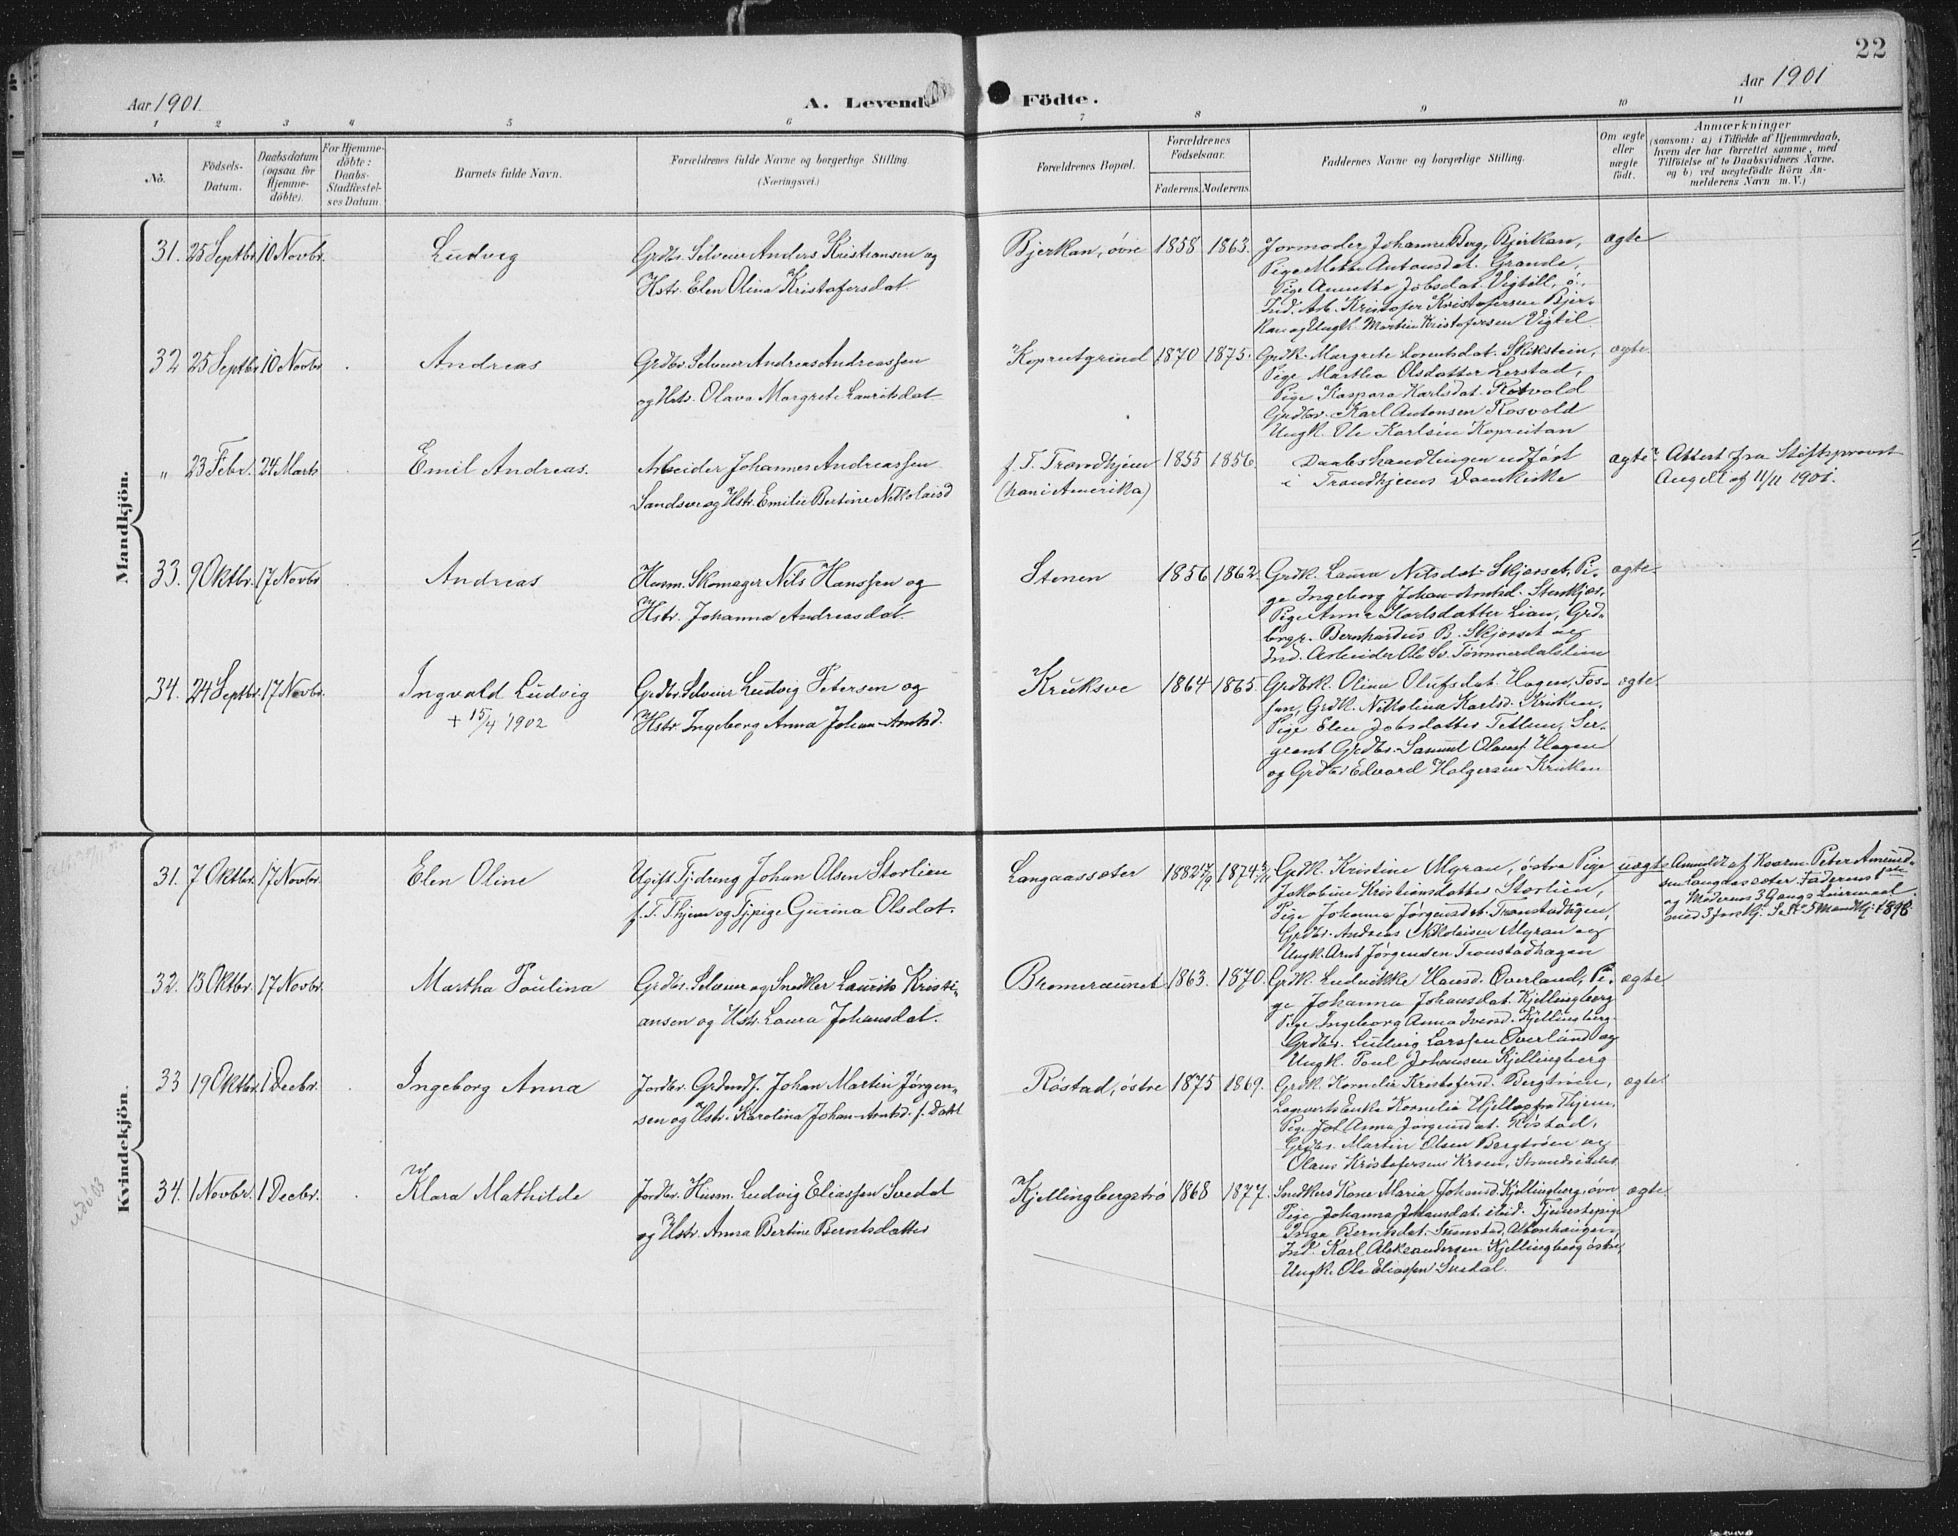 22
Aar 1901.
A. Levende Födte.
Aar 1901
1 2 3 4 5 6 7 8 9 10 11
No.
Födsels-
Datum.
Daabsdatum
(ogsaa for
Hjemme-
döbte).
For Hjemme-
döbte:
Daabs-
Stadfæstel-
ses Datum
Barnets fulde Navn.
Forældrenes fulde Navne og borgerlige Stilling.
(Næringsvei.)
Forældrenes Bopæl.
Forældrenes
Födselsaar.
Faderens. Moderens.
Faddernes Navne og borgerlige Stilling.
Om ægte
eller
uægte
födt.
Anmærkninger
(saasom: a) i Tilfælde af Hjemmedaab,
hvem der har forrettet samme, med
Tilföielse af to Daabsvidners Navne,
og b) ved uægtefödte Börn An-
melderens Navn m. V.)
Mandkjön.
31. 25 Septbr. 10 Novbr. Ludvig
Grdbr. Selveier Anders Kristiansen og
Hstr. Elen Olina Kristofersdat.
Bjerkan, övre 1858 1863.
Jormoder Johanna Berg, Bjerkan,
Pige Mette Antonsdat. Grande,
Pige Annetha Jobsdat. Vigtill, ö.
Ind. Arb. Kristofer Kristofersen Bjer-
kan og Ungk. Martin Kristofersen Vigtil
ægte
32 25 Septbr. 10 Novbr. Andreas
Grdbr. Selveier Andreas Andreassen
og Hstr. Olava Margrete Lauritsdat.
Kopreitgrind 1870 1875.
Grdk. Margrete Lorentsdat. Skikstein,
Pige Martha Olsdatter Lerstad,
Pige Kaspara Karlsdat. Rotvold
Grdbr. Karl Antonsen Rosvold
Ungk. Ole Karlsen Kopreitan
ægte.
" 23 Febr. 24 Marts Emil Andreas.
Arbeider Johannes Andreassen
Sandsve og Hstr. Emilie Bertine Nikolaisd
f. T. Trondhjem
(han i Amerika)
1855 1856.
Daabshandlingen udfört
i Trondhjems Domkirke
ægte
Attest fra Stiftsprovst
Angell af 11/11 1901.
33. 9 Oktbr. 17 Novbr. Andreas
Husm. Skomager Nils Hanssen og
Hstr. Johanna Andreasdat.
Stenen 1856 1862.
Grdk. Laura Nilsdat. Skjesset, Pi-
ge Ingeborg Johan-Arntsd. Stenkjær,
Pige Anna Karlsdatter Lian, Grd-
brgr. Bernhardus B. Skjesset og
Ind. Arbeider Ole Sv. Tömmerdalslien
ægte.
34. 24 Septbr. 17 Novbr. Ingvald Ludvig
+ 15/4 1902
Grdbr. Selveier Ludvig Petersen og
Hstr. Ingeborg Anna Johan-Arntsd.
Kruksve 1864 1865.
Grdbrk. Olina Olufsdat. Hagen, Fos-
sen, Grdk. Nikolina Karlsd. Kruken,
Pige Elen Jobsdatter Tetlun, Ser-
geant Grdbr. Samuel Olausf. Hagen
og Grdbr Edvard Holgersen Kruken
ægte.
Kvindekjön.
31. 7 Oktbr. 17 Novbr. Elen Oline
Ugift Tjdreng Johan Olsen Storlien
f. T. Thjem og Tjpige Gurina Olsdat.
Langaassæter 1882 17/9 1874 3/11
Grdk. Kristine Myran, östre Pige
Jakobine Kristiansdatter Storlien,
Pige Johanna Jörgensdat. Tronstadhagen,
Grdbr. Andreas Nikolaisen Myran og
Ungk. Arnt Jörgensen Tronstadhagen
uægte
Anmeldt af Kvarn. Peter Amund-
sen Langaassæter. Faderens 1ste
og Moderens 3 Gangs Leiermaal
med 3 forskj. Se No 5 Mandkj. 1898.
32. 13 Oktbr. 17 Novbr. Martha Paulina
Grdbr. Selveier og Snedker Laurits Kristi-
ansen og Hstr. Laura Johansdat.
Bromeraunet 1863. 1870.
Grdk. Ludvikke Hansd. Överland, Pi-
ge Johanna Johansdat. Kjellingberg
Pige Ingeborg Anna Iversd. Kjellingberg
Grdbr. Ludvig Larssen Överland og
Ungk. Poul Johansen Kjellingberg
ægte
33 19 Oktbr. 1 Decbr. Ingeborg Anna
Jordbr. Grdmdf. Johan Martin Jörgen-
sen og Hstr. Karolina Johan-Arntsd. f. Dahl
Röstad, östre 1875 1869.
Grdk. Kornelie Kristofersd. Bergtröen,
Enke Kornelia Hjellop fra Thjem,
Pige Joh Anna Jörgensdat. Röstad,
Grdbr. Martin Olsen Bergtröen og
Olaus Kristofersen Kroen, Strandveidet
ægte.
34. 1 Novbr. 1 Decbr. Klara Mathilde
Jordbr. Husm. Ludvig Eliassen Svedal
og Hstr. Anna Bertine Berntsdatter
Kjellingbergströ 1868 1877.
Snedkers Kone Maria Johansd. Kjellingberg, övre
Pige Johanna Johansdat. ibid. Tjenestepige
Inga Berntsdat. Tronstad, Altonhaugen,
Ind. Karl Aleksandersen Kjellingberg östre,
Ungk. Ole Eliassen Svedal.
ægte